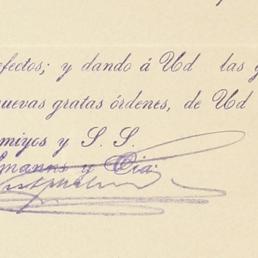 efectos; y dando á Ud las g
nuevas gratas órdenes, de Ud
amigos y S. S.
y Cia.